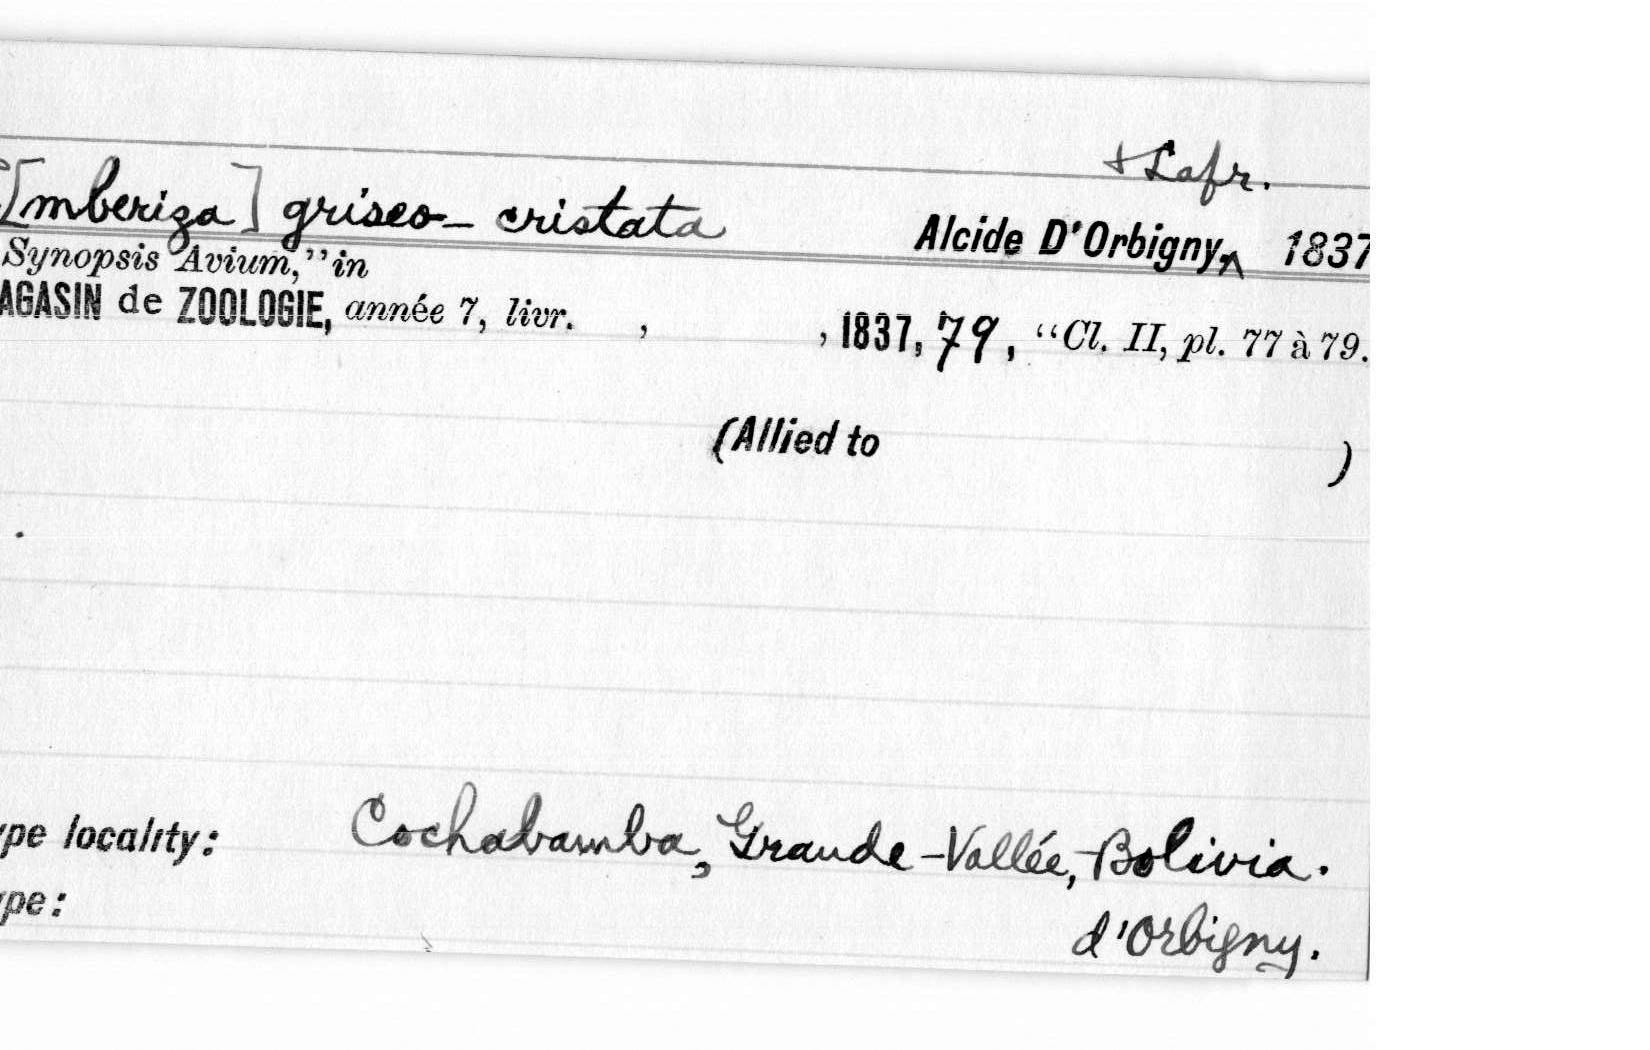 + Lafr.
[mberiza] griseo-cristata Alcide D'Orbigny,^ 1837
Synopsis Avium,” in
AGASIN de ZOOLOGIE, année 7, livr. , , 1837, 79, “Cl. II, pl. 77 à 79.
(Allied to )
ype locality: Cochabamba, Grande-Vallée, Bolivia.
ype: d'Orbigny.